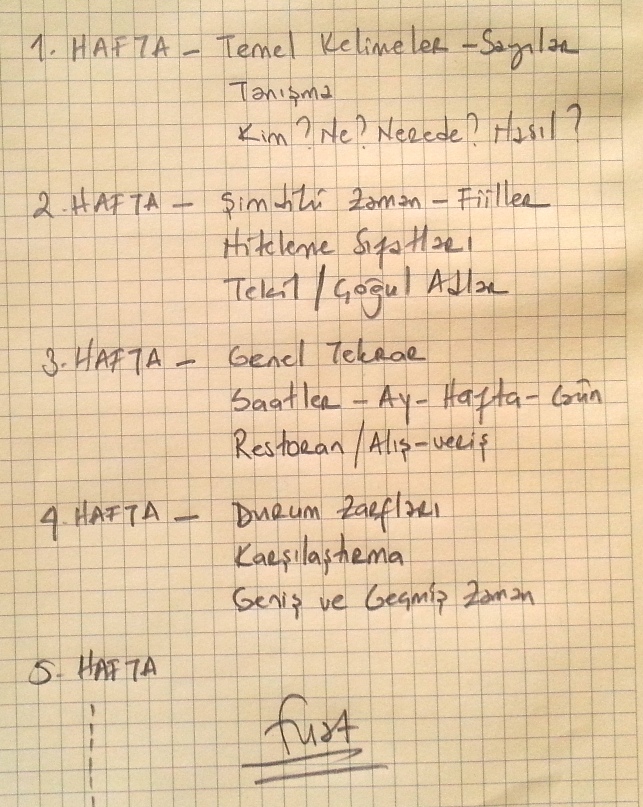 1. HAFTA – Temel Kelimeler – Sayılar
Tanışma
Kim? Ne? Nerede? Nasıl?
2. HAFTA – Şimdiki Zaman – Fiiller
Niteleme Sıfatları
Tekil / Çoğul Adlar
3. HAFTA – Genel Tekrar
Saatler – Ay – Hafta – Gün
Restoran / Alış-veriş
4. HAFTA – Durum Zarfları
Karşılaştırma
Geniş ve Geçmiş Zaman
5. HAFTA
fuat